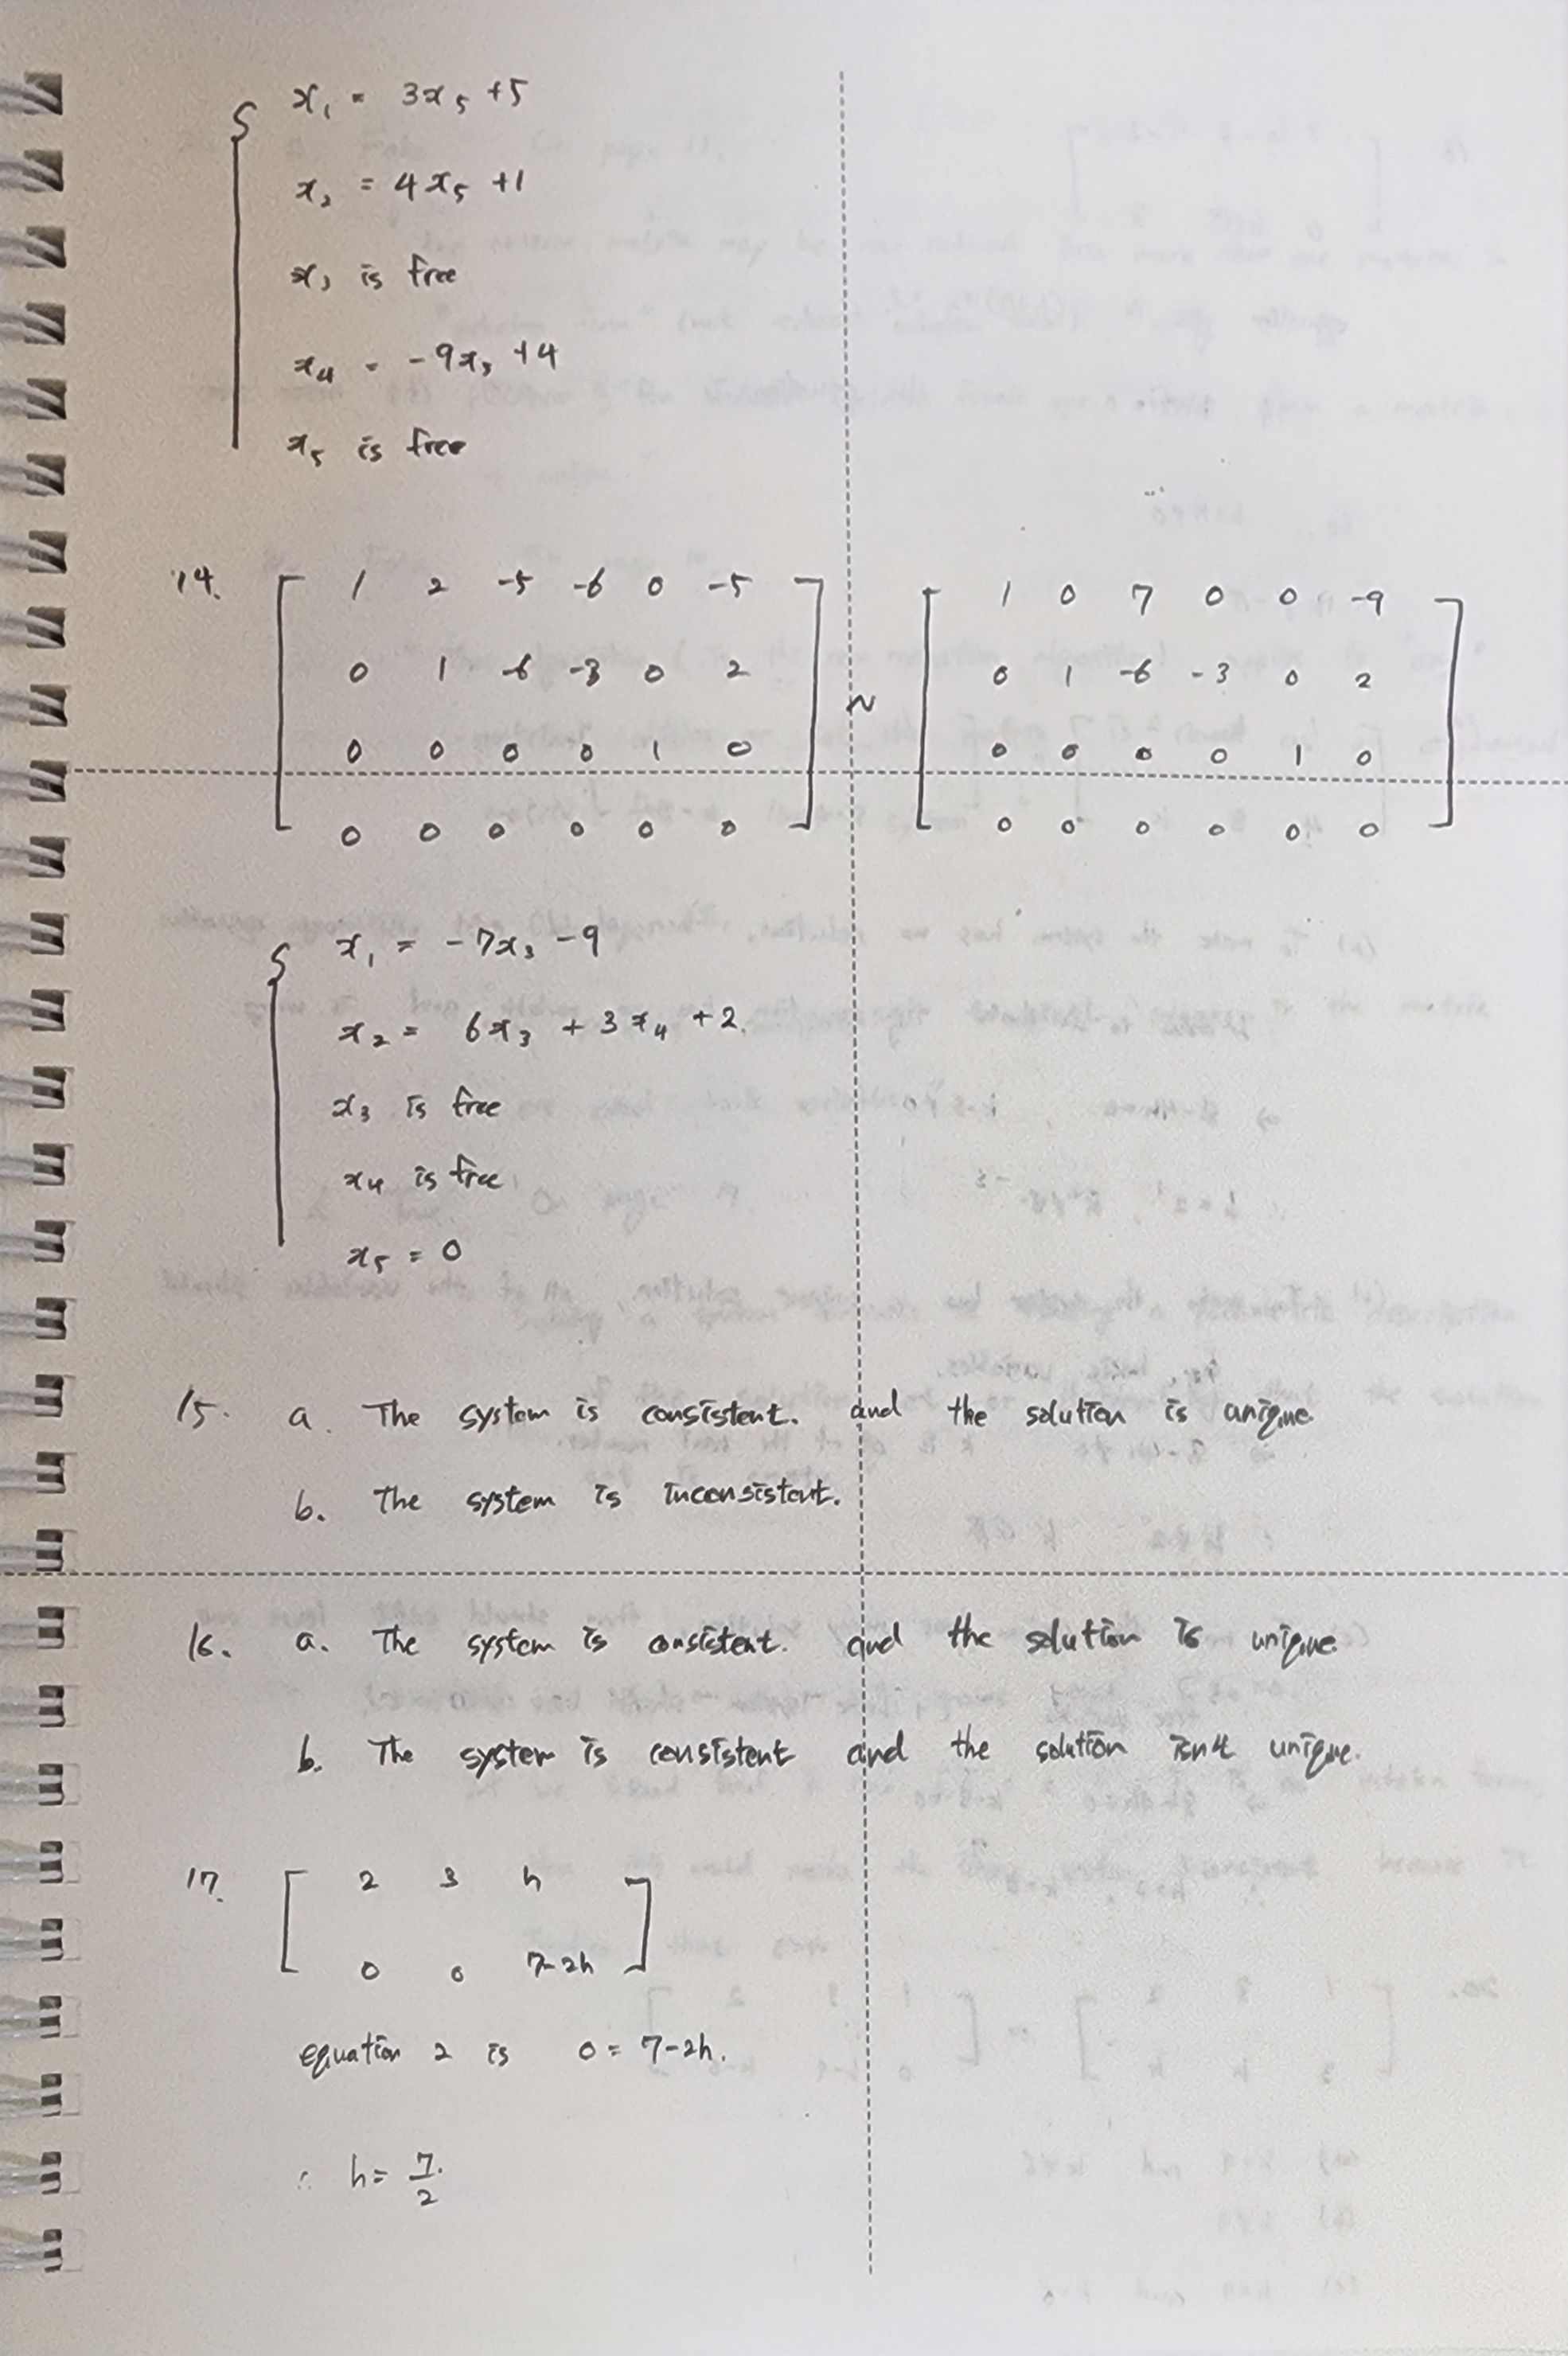 x₁ = 3x₅ +5
x₂ = 4x₅ +1
x₃ is free
x₄ = -9x₅ +4
x₅ is free
14. [ 1 2 -5 -6 0 -5 ] ~ [ 1 0 7 0 0 -9 ]
0 1 -6 -3 0 2 0 1 -6 -3 0 2
0 0 0 0 1 0 0 0 0 0 1 0
0 0 0 0 0 0 0 0 0 0 0 0
x₁ = -7x₃ -9
x₂ = 6x₃ + 3x₄ +2.
x₃ is free
x₄ is free
x₅ = 0
15. a. The system is consistent. and the solution is unique.
b. The system is inconsistent.
16. a. The system is consistent. and the solution is unique.
b. The system is consistent and the solution isn't unique.
17. [ 2 3 h ]
0 0 7-2h
equation 2 is 0 = 7-2h.
∴ h = 7/2